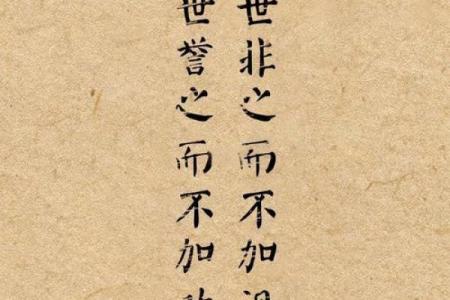 世非之而不加
世誉之而不加